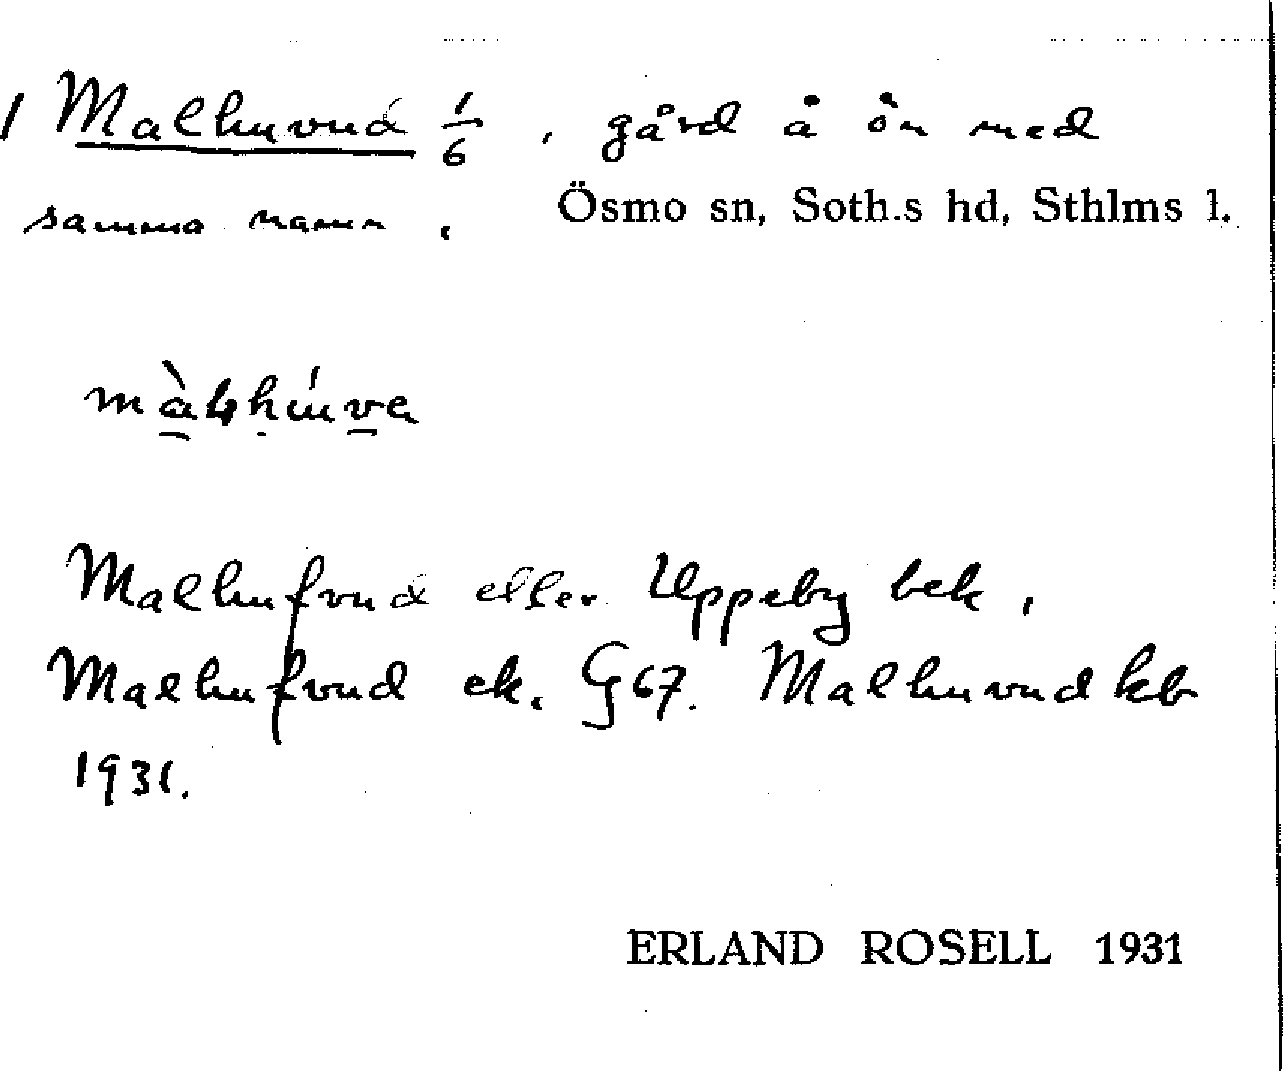 1 Malhuvud 1/6, gård å ön med
samma namn. Ösmo sn, Soth.s hd, Sthlms l.
Malhufvud eller Uppeby bek,
Malhufvud ek. G 67. Malhuvud kb
1931.
ERLAND ROSELL 1931